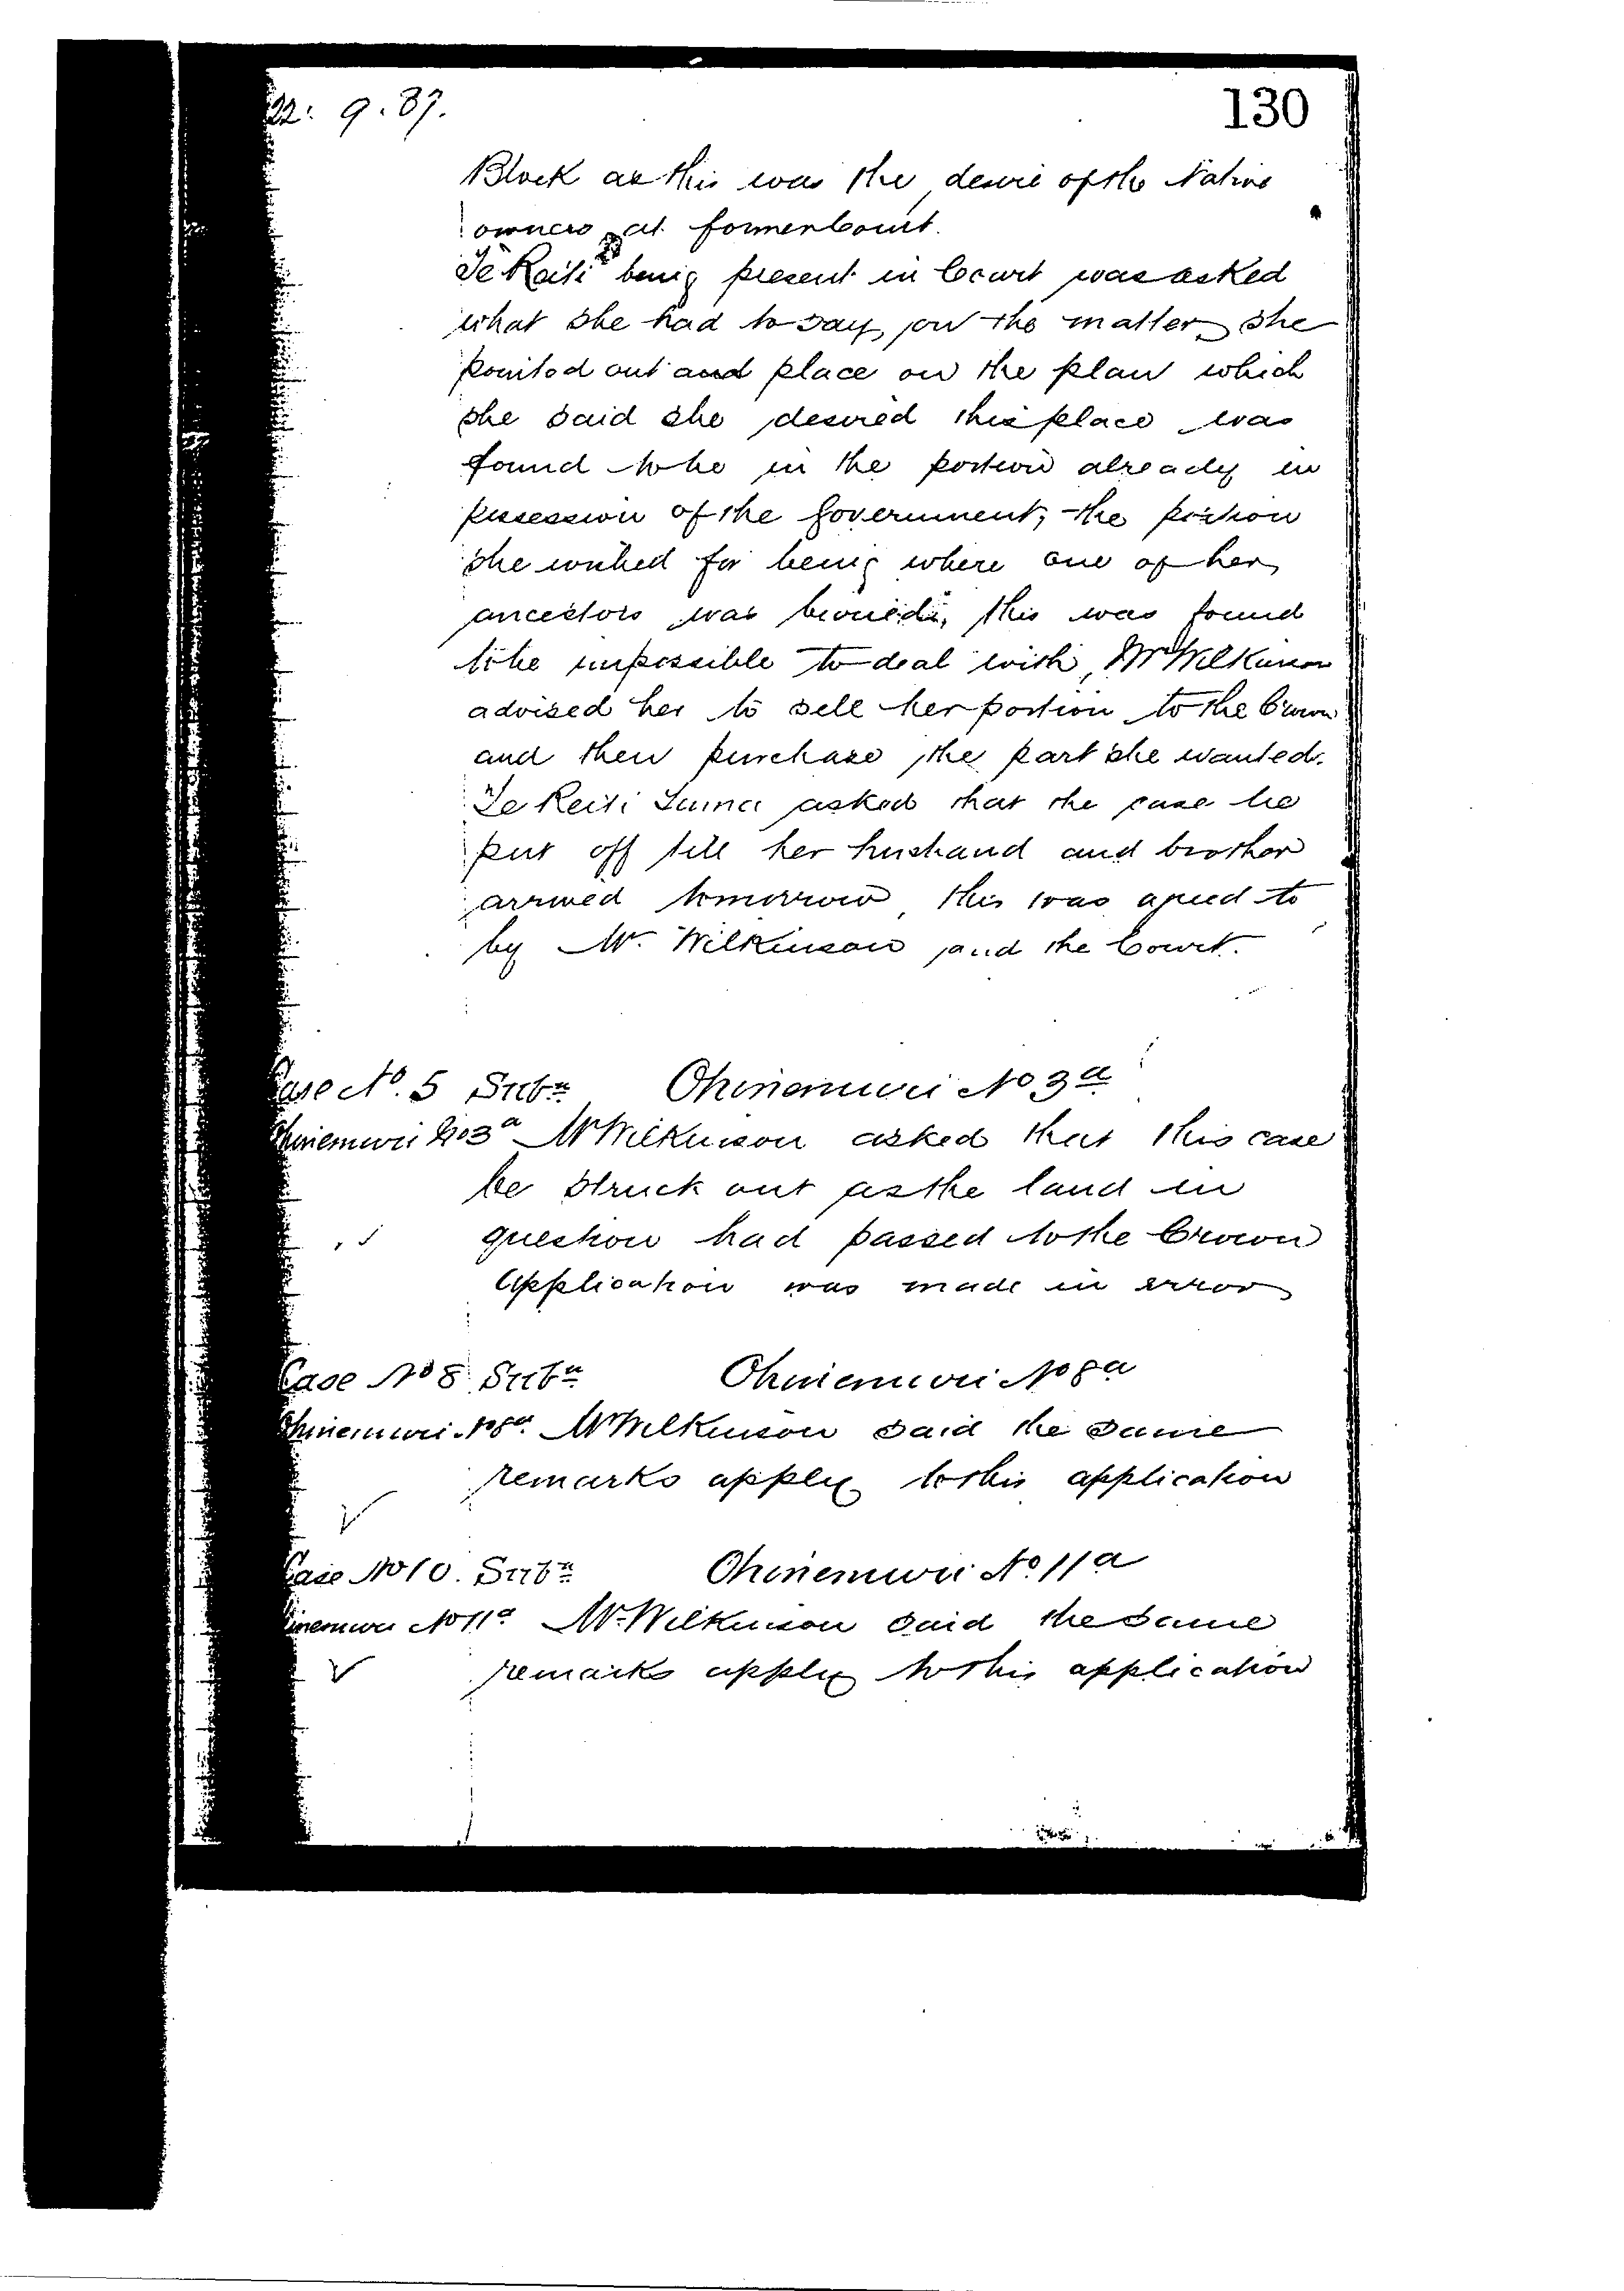 22. 9. 87.
130
Block as this was the desire of the Native
owners at former Court.
Te Reiti being present in Court was asked
what she had to say on the matter she
pointed out and place on the plan which
she said she desired this place was
found to be in the portion already in
possession of the Government, the portion
she wished for being where one of her
ancestors was buried, this was found
to be impossible to deal with, Mr Wilkinson
advised her to sell her portion to the Crown
and then purchase the part she wanted.
Te Reiti asked that the case be
put off till her husband and brother
arrived tomorrow this was agreed to
by Mr. Wilkinson and the Court.
Case No. 5 Subn Ohinemuri No 3a
Ohinemuri No 3a Mr Wilkinson asked that this case
be struck out as the land in
question had passed to the Crown
Application was made in error
Case No 8 Subn Ohinemuri No 8a
Ohinemuri No 8a Mr Wilkinson said the same
remarks apply to this application
Case No 10. Subn Ohinemuri No 11a
Ohinemuri No 11a Mr. Wilkinson said the same
remarks apply to this application